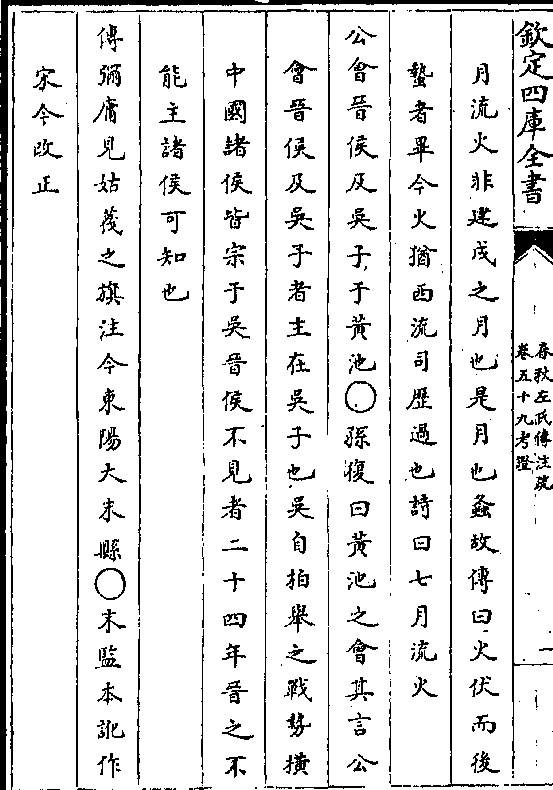 欽定四庫全書
春秋左氏傳注疏
卷五十九考證
一
月流火非建戌之月也是月也螽故傳曰火伏而後
蟄者畢今火猶西流司歴過也詩曰七月流火
公會晉侯及吳子于黃池○孫復曰黃池之會其言公
會晉侯及吳子者主在吳子也吳自柏舉之戰勢橫
中國諸侯皆宗于吳晉侯不見者二十四年晉之不
能主諸侯可知也
傳彌庸見姑蔑之旗注今東陽大末縣○末監本訛作
宋今改正